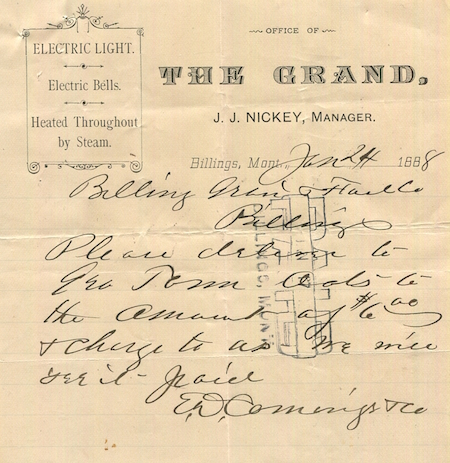 ELECTRIC LIGHT.
Electric Bells.
Heated Throughout
by Steam.
OFFICE OF
THE GRAND,
J. J. NICKEY, MANAGER.
Billings, Mont., Jan 24 1888
Billing & Co
Billings
Please deliver to
Geo Tonn to
the amount of $6.00
& charge to us We will
see it paid
E.D. Comings & Co
BILLINGS, MONT.